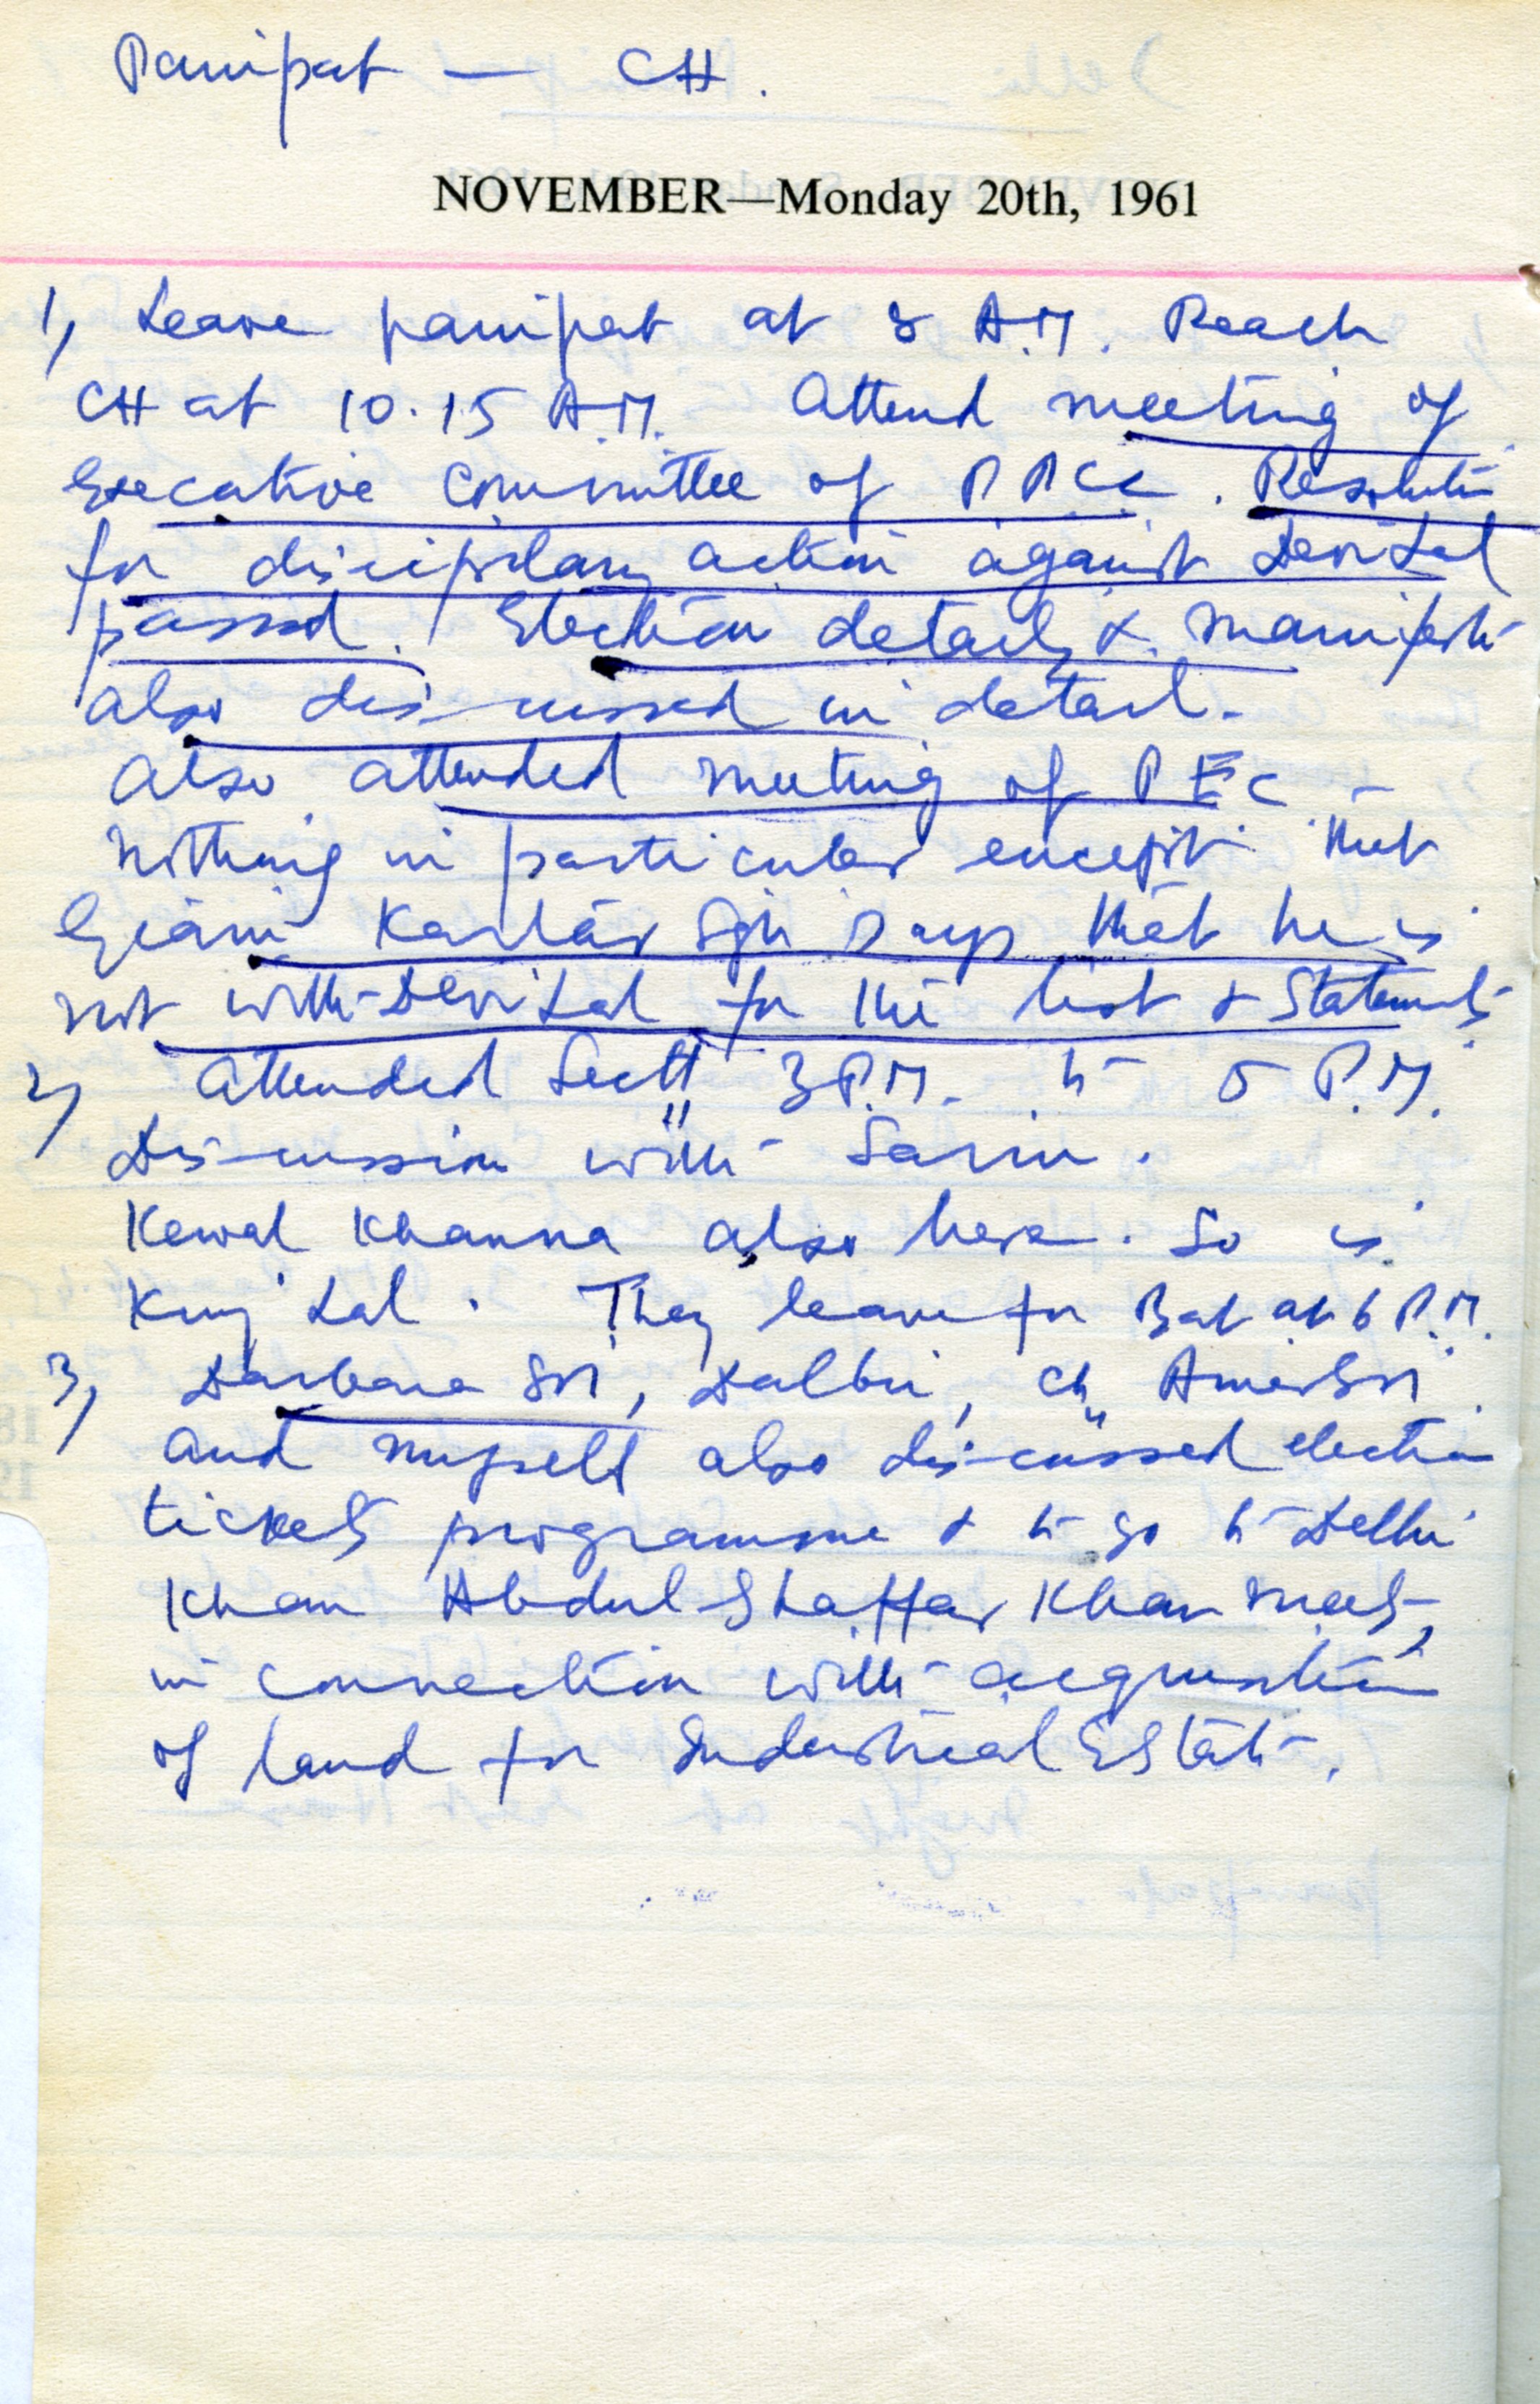 Panipat — CH.
NOVEMBER—Monday 20th, 1961
1, Leave panipat at 8 A.M. Reach
CH at 10.15 A.M. Attend meeting of
Executive Committee of PPCC. Resolution
for disciplinary action against Devi Lal
passed. Election details & manifesto
also discussed in detail.
Also attended meeting of PEC -
Nothing in particular except that
Giani Kartar Sgh says that he is
not with Devi Lal for the list & Statements
2, Attended Sectt 3 P.M. to 5 P.M.
Discussion with Sarin.
Kewal Khanna also here. So is
Lal. They leave for Bat at 6 P.M.
3, Darbara SN, Dalbir, Ch Amar SN
and myself also discussed election
tickets programme & to go to Delhi
Khan Abdul Ghaffar Khan meets,
in connection with acquisition
of land for Industrial Estate.